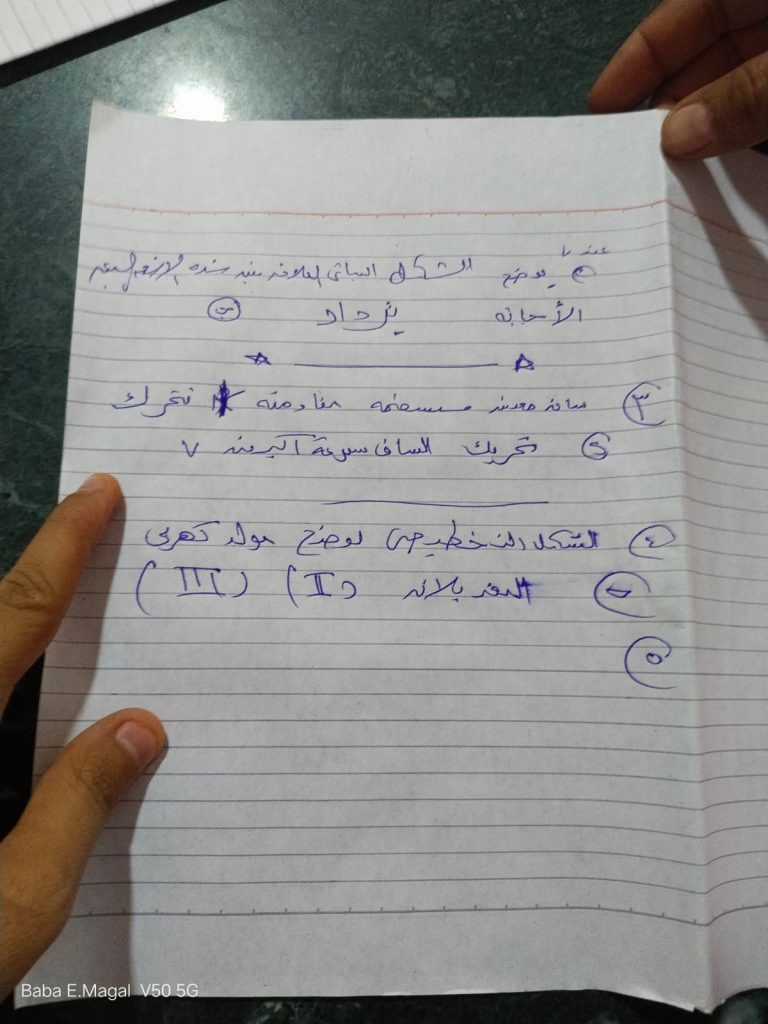 عندما
يوضح الشكل البياني العلاقة بين شدة
الأجابة يزداد
٣ ساق معدنية مستقيمة مقاومته R تتحرك
تحريك الساق بسرعة أكبر من V
٤ الشكل التخطيطي يوضح مولد كهربي
التعديلان (I) (III)
٥
Baba E.Magal V50 5G